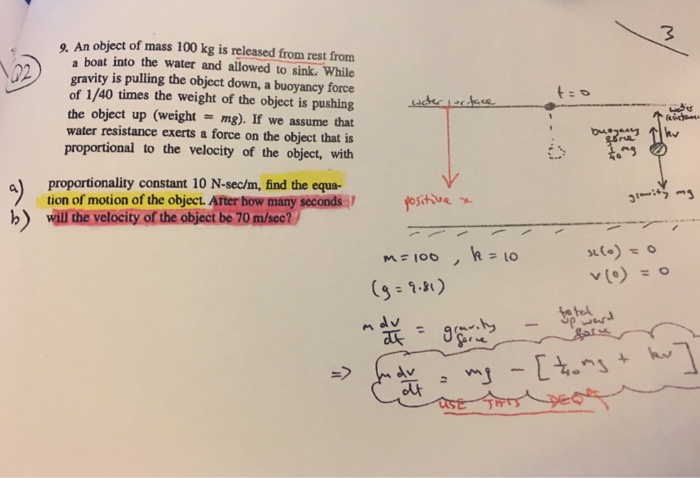 3
Q2
9. An object of mass 100 kg is released from rest from
a boat into the water and allowed to sink. While
gravity is pulling the object down, a buoyancy force
of 1/40 times the weight of the object is pushing
the object up (weight = mg). If we assume that
water resistance exerts a force on the object that is
proportional to the velocity of the object, with
a) proportionality constant 10 N-sec/m, find the equa-
tion of motion of the object. After how many seconds
b) will the velocity of the object be 70 m/sec?
water surface
t=0
water
resistance
kv
buoyancy
force
1/40 mg
gravity mg
positive x
m=100, k=10
x(0) = 0
(g=9.81)
v(0) = 0
m dv/dt = gravity force - total upward force
=> m dv/dt = mg - [1/40 mg + kv]
USE THIS DEQ